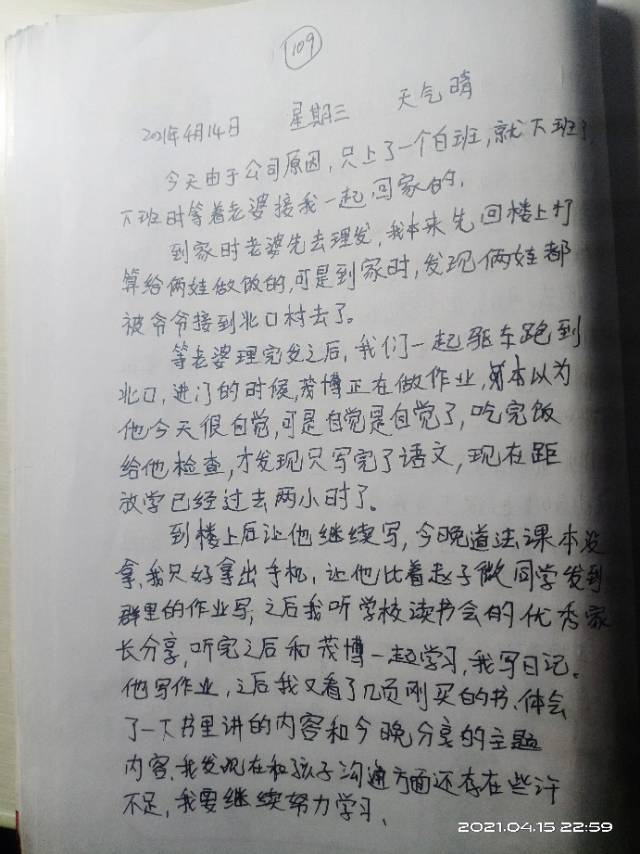 109
2021年4月14日 星期三 天气晴
今天由于公司原因,只上了一个白班,就下班了,
下班时等着老婆接我一起回家的,
到家时老婆先去理发,我本来先回楼上打
算给俩娃做饭的,可是到家时,发现俩娃都
被爷爷接到北口村去了。
等老婆理完发之后,我们一起驱车跑到
北口,进门的时候,茂博正在做作业,本以为
他今天很自觉,可是自觉是自觉了,吃完饭
给他检查,才发现只写完了语文,现在距
放学已经过去两小时了。
到楼上后让他继续写,今晚道法课本没
拿,我只好拿出手机,让他比着赵子傲同学发到
群里的作业写,之后我听学校读书会的优秀家
长分享,听完之后和茂博一起学习,我写日记。
他写作业,之后我又看了几页刚买的书、体会
了一下书里讲的内容和今晚分享的主题
内容,我发现在和孩子沟通方面还存在些许
不足,我要继续努力学习、
2021.04.15 22:59